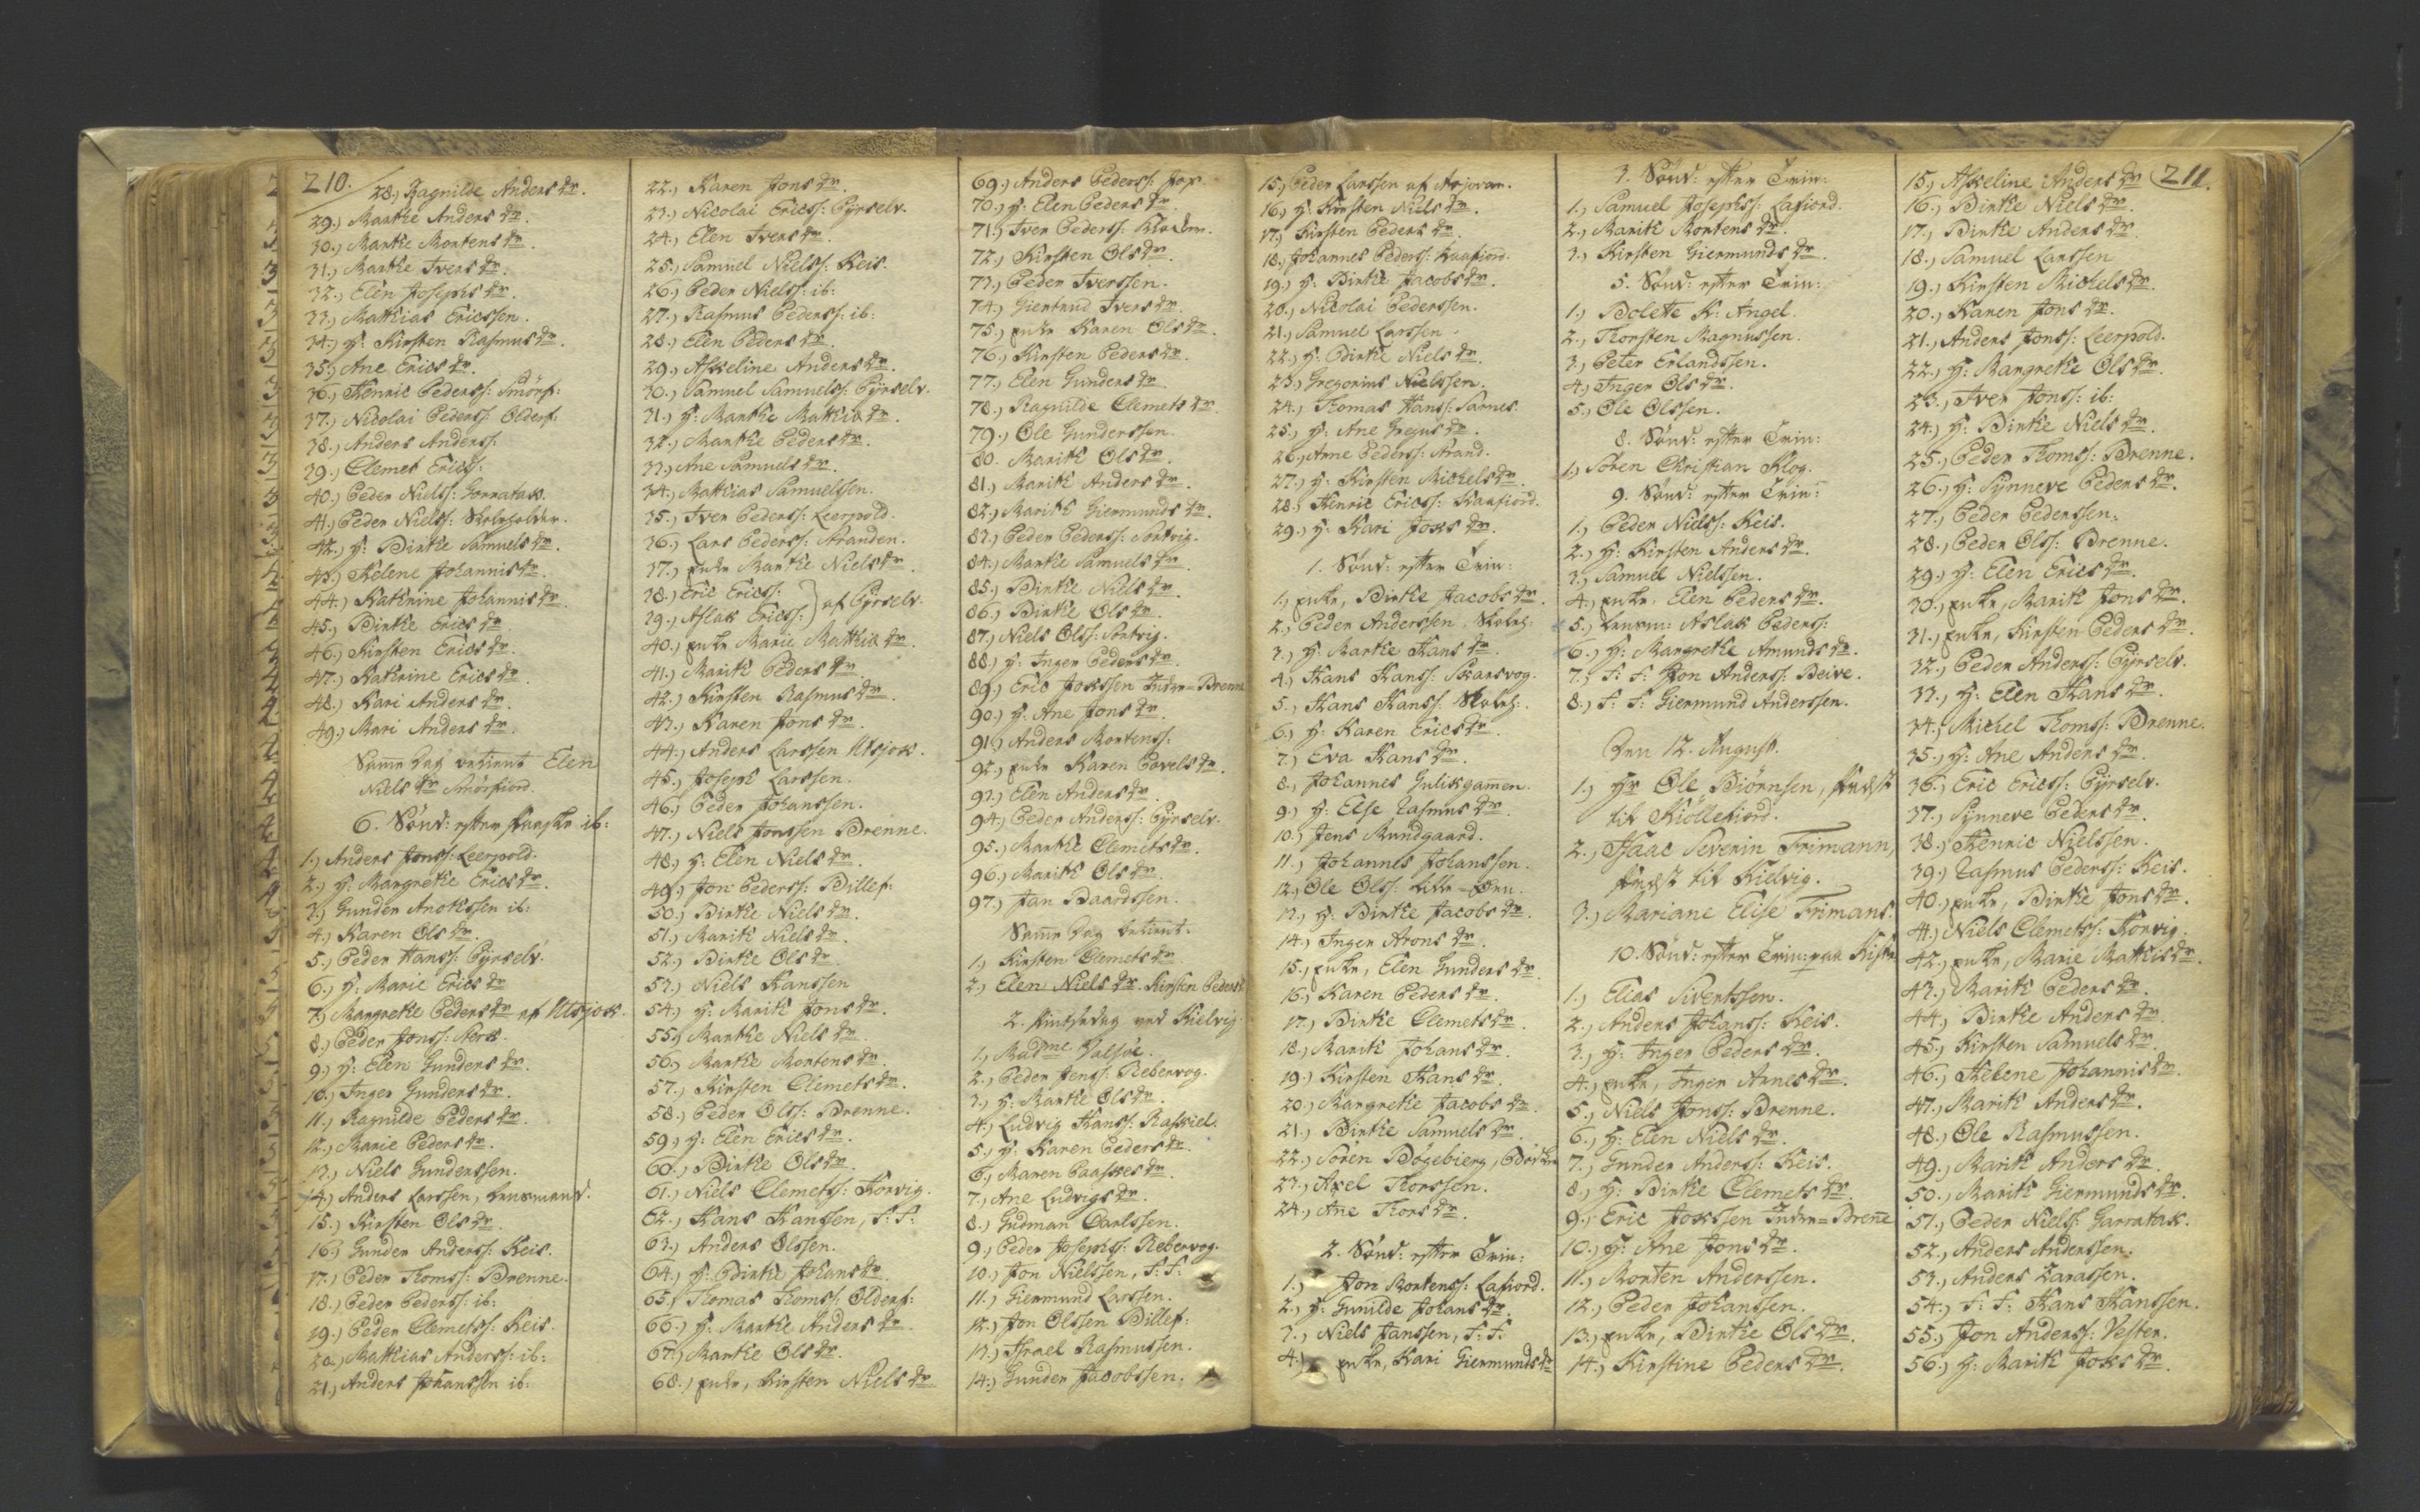 210.
28.) Ragnilde Anders dr.
29.) Marthe Anders dr.
30.) Marthe Mortens dr.
31.) Marthe Ivers dr.
32.) Elen Josephs dr.
33.) Mathias Ericssen.
34.) H: Kirsten Rasmus dr.
35.) Ane Erics dr.
36.) Henric Pederss: Smörf:
37.) Nicolai Pederss: Olderf:
38.) Anders Anderss:
39.) Clemet Ericss:
40.) Peder Nielss: Gorratak.
41.) Peder Nielss: Skoleholder.
42.) H: Birthe Samuels dr.
43.) Helene Johannis dr.
44.) Kathrine Johannis dr.
45.) Birthe Erics dr.
46.) Kirsten Erics dr.
47.) Kathrine Erics dr.
48.) Kari Anders dr.
49.) Mari Anders dr.
Samme Dag betient Elen
Niels dr Smörfiord.
6. Sönd: efter Paaske ib:
1.) Anders Jonss: Leerpold.
2.) H: Margrethe Erics dr.
3.) Gunder Anokssen ib:
4.) Karen Ols dr.
5.) Peder Hanss: Pyrselv.
6.) H: Marie Erics dr
7.) Margrethe Peders dr af Utsjok.
8.) Peder Jonss:
9.) H: Elen Gunders dr.
10.) Inger Gunders dr.
11.) Ragnilde Peders dr.
12.) Marie Peders dr.
13.) Niels Gunderssen.
14.) Anders Larssen, Lensmand.
15.) Kirsten Ols dr.
16.) Gunder Anderss: Keis.
17.) Peder Thomss: Brenne.
18.) Peder Pederss: ib:
19.) Peder Clemetss: Keis.
20.) Mathias Anderss: ib:
21.) Anders Johanssen ib:
22.) Karen Jons dr.
23.) Nicolai Ericss: Pyrselv.
24.) Elen Ivers dr.
25.) Samuel Nielss: Keis.
26.) Peder Nielss: ib:
27.) Rasmus Pederss: ib:
28.) Elen Peders dr.
29.) Askeline Anders dr.
30.) Samuel Samuelss: Pyrselv.
31.) H: Marthe Mathis dr.
32.) Marthe Peders dr.
33.) Ane Samuels dr.
34.) Mathias Samuelssen.
35.) Iver Pederss: Leerpold.
36.) Lars Pederss: Stranden.
37.) pike Marthe Niels dr.
38.) Eric Ericss:
39.) Aslak Ericss: } af Pyrselv.
40.) pike Marie Mathis dr.
41.) Marith Peders dr.
42.) Kirsten Rasmus dr.
43.) Karen Jons dr.
44.) Anders Larssen Utsjok.
45.) Joseph Larssen.
46.) Peder Johanssen.
47.) Niels Jonssen Brenne.
48.) H: Elen Niels dr.
49.) Jon Pederss: Billef:
50.) Birthe Niels dr.
51.) Marith Niels dr.
52.) Birthe Ols dr.
53.) Niels Hanssen
54.) H: Marith Jons dr.
55.) Marthe Niels dr.
56.) Marthe Mortens dr.
57.) Kirsten Clemets dr.
58.) Peder Olss: Brenne.
59.) H: Elen Erics dr.
60.) Birthe Ols dr.
61.) Niels Clemetss: Korvig.
62.) Hans Hanssen, F: F:
63.) Anders Olssen.
64.) H: Birthe Johans dr.
65.) Thomas Thomss: Olderf:
66.) H: Marthe Anders dr.
67.) Marthe Ols dr.
68.) pike, Kirsten Niels dr.
69.) Anders Pederss:
70.) H: Elen Peders dr.
71.) Iver Pederss:
72.) Kirsten Ols dr.
73.) Peder Iverssen.
74.) Giertrud Ivers dr.
75.) pike Karen Ols dr.
76.) Kirsten Peders dr.
77.) Elen Gunders dr.
78.) Ragnilde Clemets dr.
79.) Ole Gunderssen.
80. Marith Ols dr.
81.) Marith Anders dr.
82.) Marith Giermunds dr.
83.) Peder Pederss: Sortvig.
84.) Marthe Samuels dr.
85.) Birthe Niels dr.
86.) Birthe Ols dr.
87.) Niels Olss: Sortvig.
88.) H: Inger Peders dr.
89.) Eric Jokssen Indre-Brenne
90.) H: Ane Jons dr.
91.) Anders Mortenss:
92.) pike Karen Povels dr.
93.) Elen Anders dr.
94.) Peder Anderss: Pyrselv.
95.) Marthe Clemets dr.
96.) Marith Ols dr.
97.) Jan Baardssen.
Samme Dag betient.
1.) Kirsten Clemets dr
2.) Elen Niels dr. Kirsten Peders dr
2. Pintsedag ved Kielvig.
1.) Madme
2.) Peder Jenss: Rebervog.
3.) H: Marthe Ols dr.
4.) Ludvig Hanss:
5.) H: Karen Peders dr.
6.) Maren Paaskes dr.
7.) Ane Ludvigs dr.
8.) Gudman Carlssen.
9.) Peder Josephss: Rebervog.
10.) Jon Nielssen, F: F:
11.) Giermund Larssen.
12.) Jon Olssen Billef:
13.) Israel Rasmussen.
14.) Gunder Jacobssen.
15.) Peder Larssen af
16.) H: Kirsten Niels dr.
17.) Kirsten Peders dr.
18.) Johannes Pederss: Kaafiord.
19.) H: Birthe Jacobs dr.
20.) Nicolai Pederssen.
21.) Samuel Larssen.
22.) H: Birthe Niels dr.
23.) Gregorius Nielssen.
24.) Thomas Hanss: Sarnes.
25.) H: Ane Gregus dr.
26.) Arne Pederss: Strand.
27.) H: Kirsten Michels dr.
28.) Henric Ericss: Kaafiord.
29.) H: Kari Joks dr.
1. Sönd: efter Trin:
1.) pike, Birthe Jacobs dr.
2.) Peder Anderssen. Skoleh:
3.) H: Marthe Hans dr.
4.) Hans Hanss: Skarsvog.
5.) Hans Hanss: Skoleh:
6.) H: Karen Erics dr.
7.) Eva Hans dr.
8.) Johannes Gulikgamen.
9.) H: Else Rasmus dr.
10.) Jens Mundgaard.
11.) Johannes Johanssen.
12.) Ole Olss:
13.) H: Birthe Jacobs dr.
14.) Inger Arons dr.
15.) pike, Elen Gunders dr.
16.) Karen Peders dr.
17.) Birthe Clemets dr.
18.) Marith Johans dr.
19.) Kirsten Hans dr.
20.) Margrethe Jacobs dr.
21.) Birthe Samuels dr.
22.) Sören Bögebierg,
23.) Axel Thorssen.
24.) Ane Thors dr.
2. Sönd: efter Trin:
1.) Jon Mortenss: Lafiord.
2.) H: Gunilde Johans dr.
3.) Niels Janssen, F: F:
4.) pike, Kari Giermunds dr
3. Sönd: efter Trin:
1.) Samuel Josephss: Lafiord.
2.) Marith Mortens dr.
3.) Kirsten Giermunds dr.
5. Sönd: efter Trin:
1.) Bolette K: Angel.
2.) Thorsten Magnussen.
3.) Peter Erlandssen.
4.) Inger Ols dr.
5.) Ole Olssen.
8. Sönd: efter Trin:
1.) Sören Christian Klog.
9. Sönd: efter Trin:
1.) Peder Nielss: Keis.
2.) H: Kirsten Anders dr.
3.) Samuel Nielssen.
4.) pike, Elen Peders dr.
5.) Lensm: Aslak Pederss:
6.) H: Margrethe Amunds dr.
7.) F: F: Jon Anderss: Beive.
8.) F: F: Giermund Anderssen.
Den 12. August.
1.) Hr Ole Biörnsen, Præst
til Kiöllefiord.
2.) Isaac Severin Frimann,
Præst til Kielvig.
3.) Mariane Elise Frimans.
10. Sönd: efter Trin: paa
1.) Elias Sivertssen.
2.) Anders Johanss: Keis.
3.) H: Inger Peders dr.
4.) pike, Inger Arnes dr.
5.) Niels Jonss: Brenne.
6.) H: Elen Niels dr.
7.) Gunder Anderss: Keis.
8.) H: Birthe Clemets dr.
9.) Eric Jokssen Indre-Brenne
10.) H: Ane Jons dr.
11.) Morten Anderssen.
12.) Peder Johanssen.
13.) pike, Birthe Ols dr.
14.) Kirstine Peders dr.
211.
15.) Askeline Anders dr
16.) Birthe Niels dr.
17.) Birthe Anders dr.
18.) Samuel Larssen
19.) Kirsten Michels dr.
20.) Karen Jons dr.
21.) Anders Jonss: Leerpold.
22.) H: Margrethe Ols dr.
23.) Iver Jonss: ib:
24.) H: Birthe Niels dr.
25.) Peder Thomss: Brenne.
26.) H: Synneve Peders dr.
27.) Peder Pederssen.
28.) Peder Olss: Brenne.
29.) H: Elen Erics dr.
30.) pike, Marith Jons dr.
31.) pike, Kirsten Peders dr.
32.) Peder Anderss: Pyrselv.
33.) H: Elen Hans dr.
34.) Michel Thomss: Brenne.
35.) H: Ane Anders dr.
36.) Eric Ericss: Pyrselv.
37.) Synneve Peders dr.
38.) Henric Nielssen.
39.) Rasmus Pederss: Keis.
40.) pike, Birthe Jons dr.
41.) Niels Clemetss: Korvig.
42.) pike, Marie Mathis dr.
43.) Marith Peders dr.
44.) Birthe Anders dr.
45.) Kirsten Samuels dr.
46.) Helene Johannis dr.
47.) Marith Anders dr.
48.) Ole Rasmussen.
49.) Marith Anders dr.
50.) Marith Giermunds dr.
51.) Peder Nielss: Garratak.
52.) Anders Anderssen.
53.) Anders Zarassen.
54.) F: F: Hans Hanssen.
55.) Jon Anderss: Vester.
56.) H: Marith Joks dr.